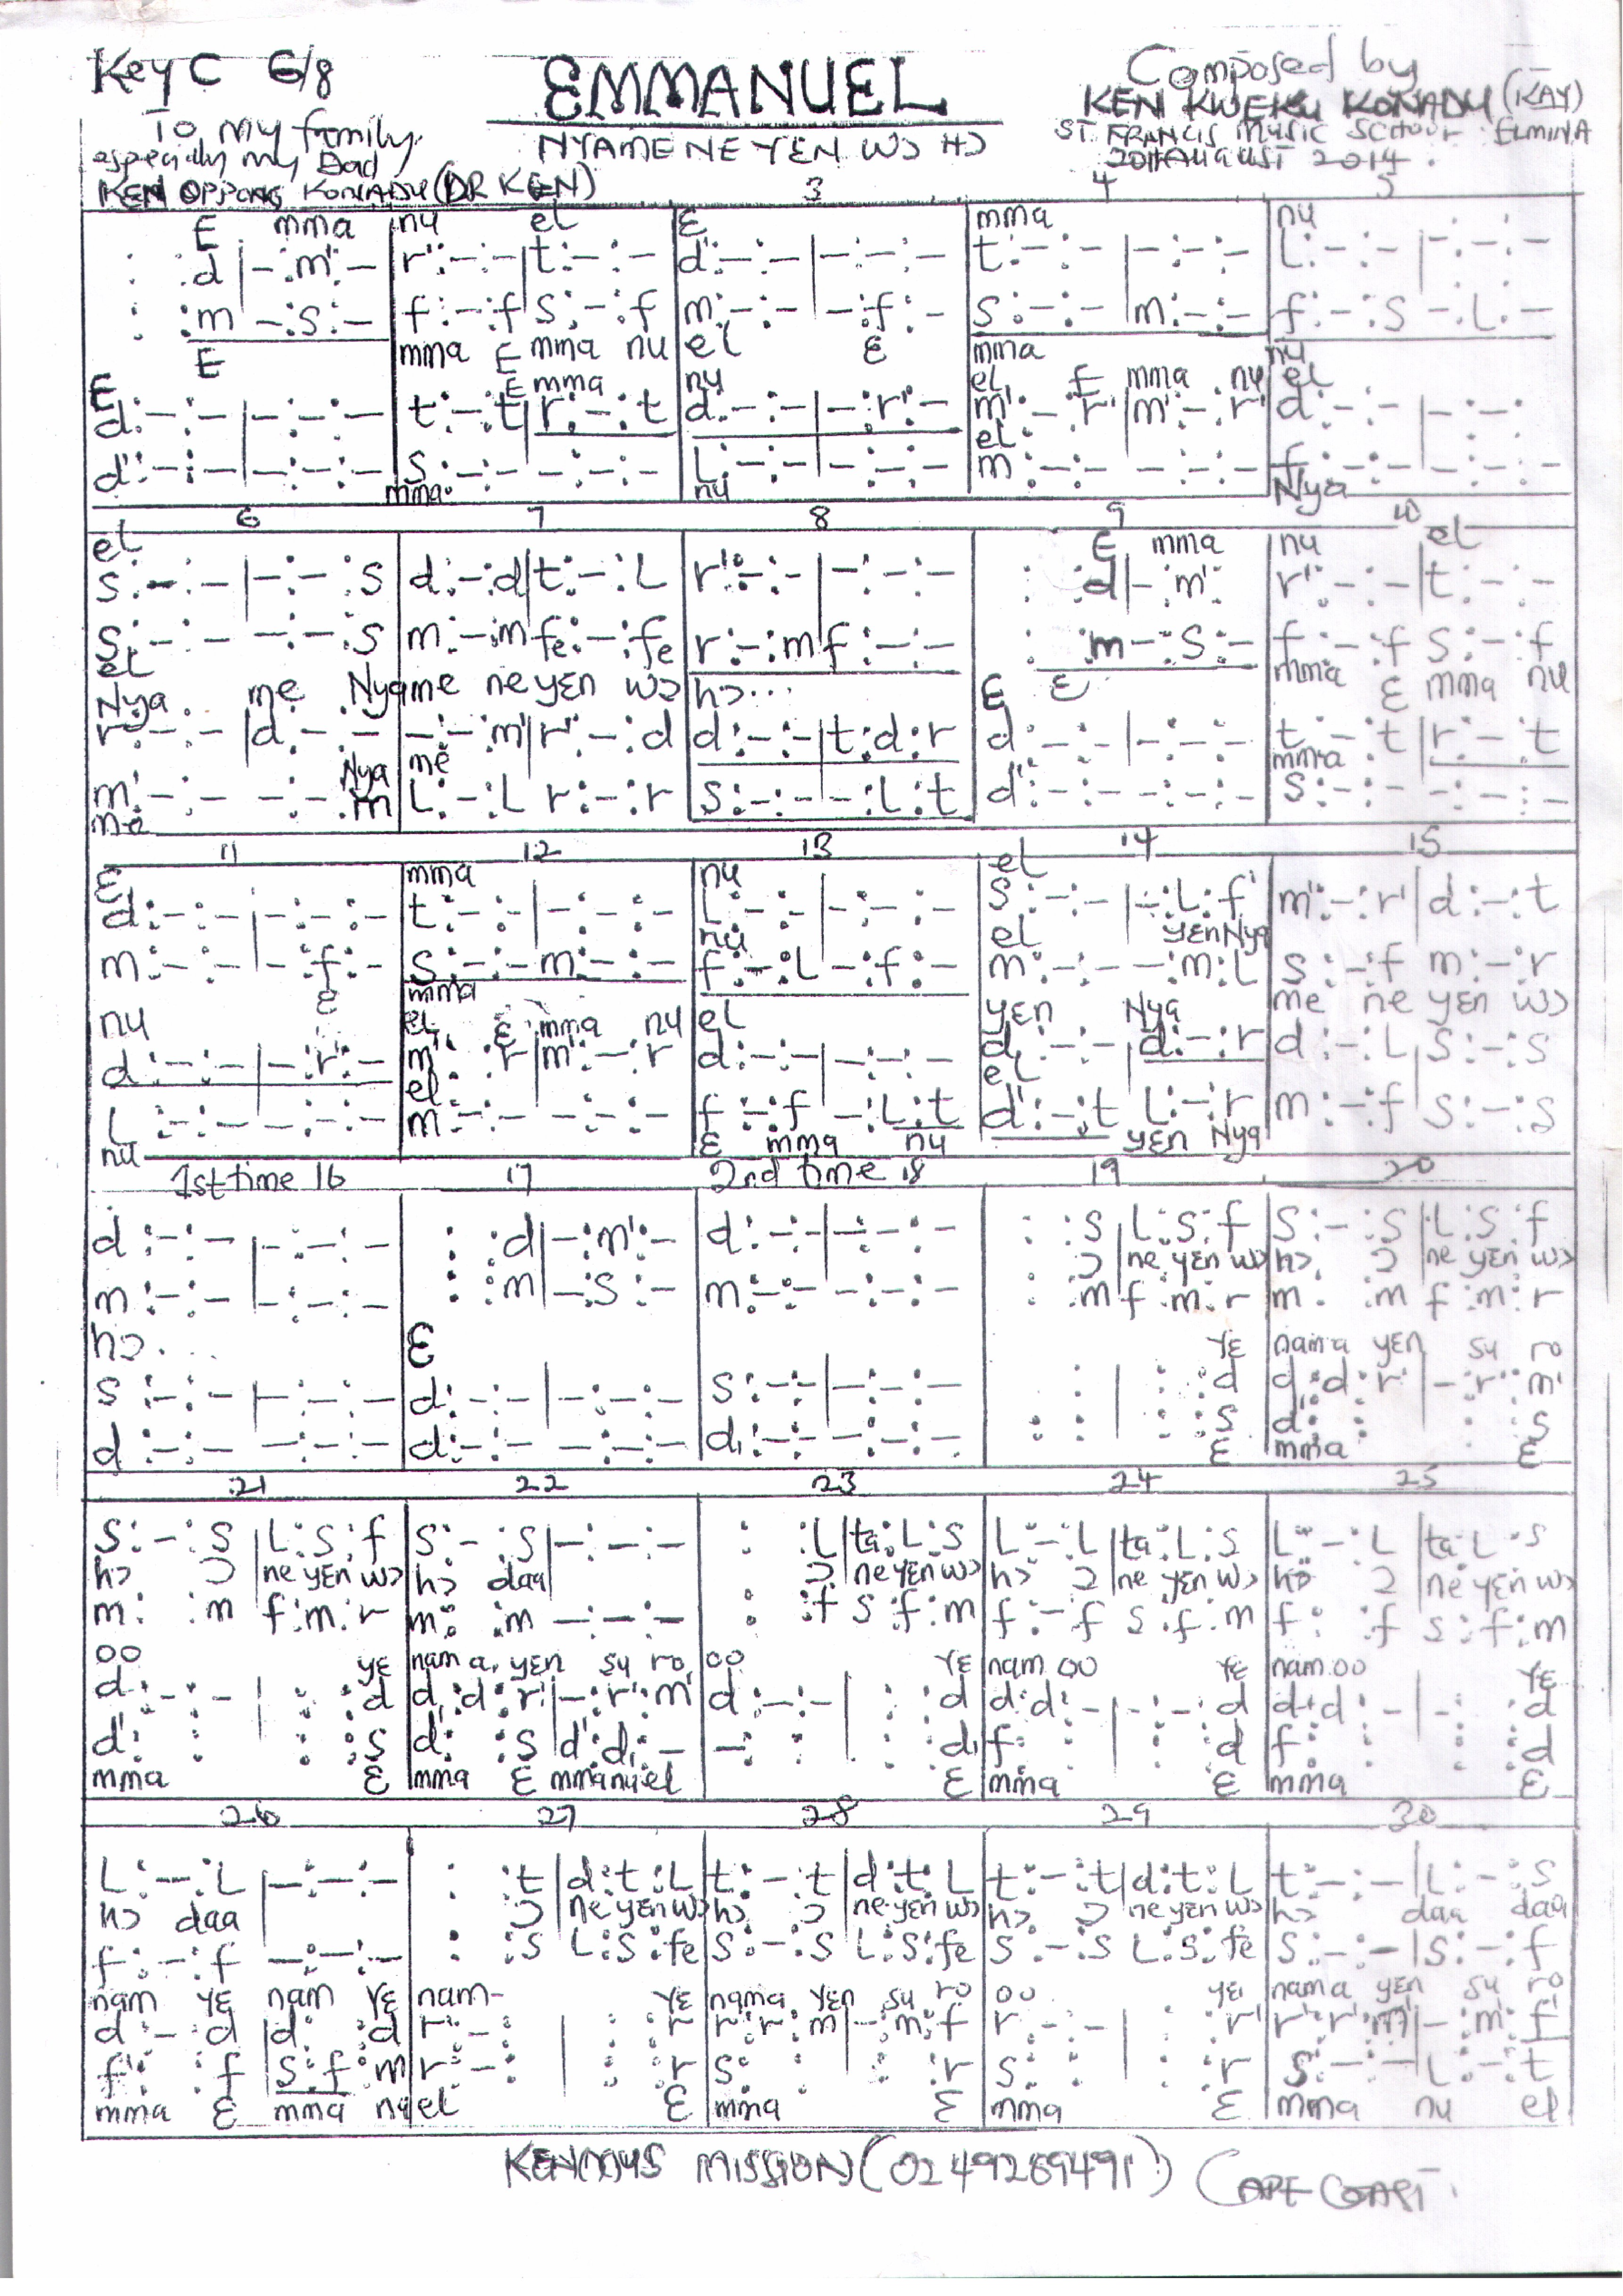 Key C 6/8
EMMANUEL
Composed by
KEN KWEKU KONADU (KAY)
To my family
especially my Dad
KEN OPPONG KONADU (DR KEN)
NYAME NE YEN Wɔ Hɔ
ST. FRANCIS MUSIC SCHOOL ELMINA
AUGUST 2014.
3 4 5
E mma nu el E mma nu
: :d |-:m':- r':-:-|t:-:- d':-:-|-:-:- t:-:-|-:-:- L:-:-|-:-:-
: :m -:s:- f:-:f s:-:f m:-:- -:f:- s:-:- m:-:- f:-:s -:L:-
E mma E mma nu el E mma nu
E E mma nu el E mma nu el
d:-:-|-:-:- t:-:t|r:-:t d:-:-|-:r':- m':-:r'|m':-:r' d:-:-|-:-:-
el
d':-:-|-:-:- s:-:- -:-:- L:-:-|-:-:- m:-:- -:-:- f:-:- -:-:-
mma nu Nya
6 7 8 9 10
el E mma nu el
s:-:-|-:-:s d:-:d|t:-:L r':-:-|-:-:- : :d|-:m': r':-:-|t:-:-
s:-:- -:-:s m:-:m fe:-:fe r:-:m f:-:- : :m -:s:- f:-:f s:-:f
el mma E mma nu
Nya me Nyame ne yɛn wɔ hɔ... E E
r:-:-|d:-:- -:-:m'|r':-:d d:-:-|t:d:r d:-:-|-:-:- t:-:t|r:-:t
Nya me mma
m':-:- -:-:m L:-:L r:-:r s:-:- -:L:t d':-:- -:-:- s:-:- -:-:-
me
11 12 13 14 15
E mma nu el
d:-:-|-:-:- t:-:-|-:-:- L:-:-|-:-:- s:-:-|-:L:f' m':-:r'|d:-:t
nu el yɛn Nya
m:-:-|-:f:- s:-:- m:-:- f:-:L -:f:- m:-:- -:m:L s:-:f m:-:r
E mma me ne yɛn wɔ
nu el E mma nu el yɛn Nya
d:-:-|-:r:- m':-:r|m':-:r d:-:- -:-:- d:-:- d:-:r d:-:L s:-:s
el el
L:-:- -:-:- m:-:- -:-:- f:-:f -:L:t d':-:t L:-:r m:-:f s:-:s
nu E mma nu yɛn Nya
1st time 16 17 2nd time 18 19 20
d:-:-|-:-:- : :d|-:m':- d:-:-|-:-:- : :s|L:s:f s:-:s|L:s:f
ɔ ne yɛn wɔ hɔ ɔ ne yɛn wɔ
m:-:-|-:-:- : :m|-:s:- m:-:- -:-:- : :m f:m:r m: :m f:m:r
hɔ... E yɛ nam a yɛn su ro
s:-:-|-:-:- d:-:-|-:-:- s:-:-|-:-:- : : | : :d d:d:r'|-:r':m'
d:-:- -:-:- d:-:- -:-:- d,:-:- -:-:- : : : :s d': : : :s
E mma E
21 22 23 24 25
s:-:s|L:s:f s:-:s|-:-:- : :L|ta:L:s L:-:L|ta:L:s L:-:L|ta:L:s
hɔ ɔ ne yɛn wɔ hɔ daa ɔ ne yɛn wɔ hɔ ɔ ne yɛn wɔ hɔ ɔ ne yɛn wɔ
m: :m f:m:r m: :m -:-:- : :f s:f:m f:-:f s:f:m f: :f s:f:m
oo yɛ nam a, yɛn su ro, oo yɛ nam oo yɛ nam oo yɛ
d:-:-| : :d d:d:r'|-:r':m' d:-:-| : :d d:d:-|-:-:d d:d:-|-: :d
d': : : :s d': :s|d':d,:- -: : | : :d, f: : : :d f: : : :d
mma E mma E mmanuel E mma E mma E
26 27 28 29 30
L:-:L|-:-:- : :t|d:t:L t:-:t|d:t:L t:-:t|d:t:L t:-:-|L:-:s
hɔ daa ɔ ne yɛn wɔ hɔ ɔ ne yɛn wɔ hɔ ɔ ne yɛn wɔ hɔ daa daa
f:-:f -:-:- : :s L:s:fe s:-:s L:s:fe s:-:s L:s:fe s:-:-|s:-:f
nam yɛ nam yɛ nam- yɛ nam a, yɛn su ro oo yɛ nam a yɛn su ro
d:-:d|d: :d r:-: | : :r r:r:m|-:m:f r:-:-| : :r' r':r':m'|-:m':f'
f': :f s:f:m r:-: : :r s: : : :r s: : : :r s:-:-|L:-:t
mma E mma nu el E mma E mma E mma nu el
KENKAYS MISSION (0249269491) (CAPE COAST